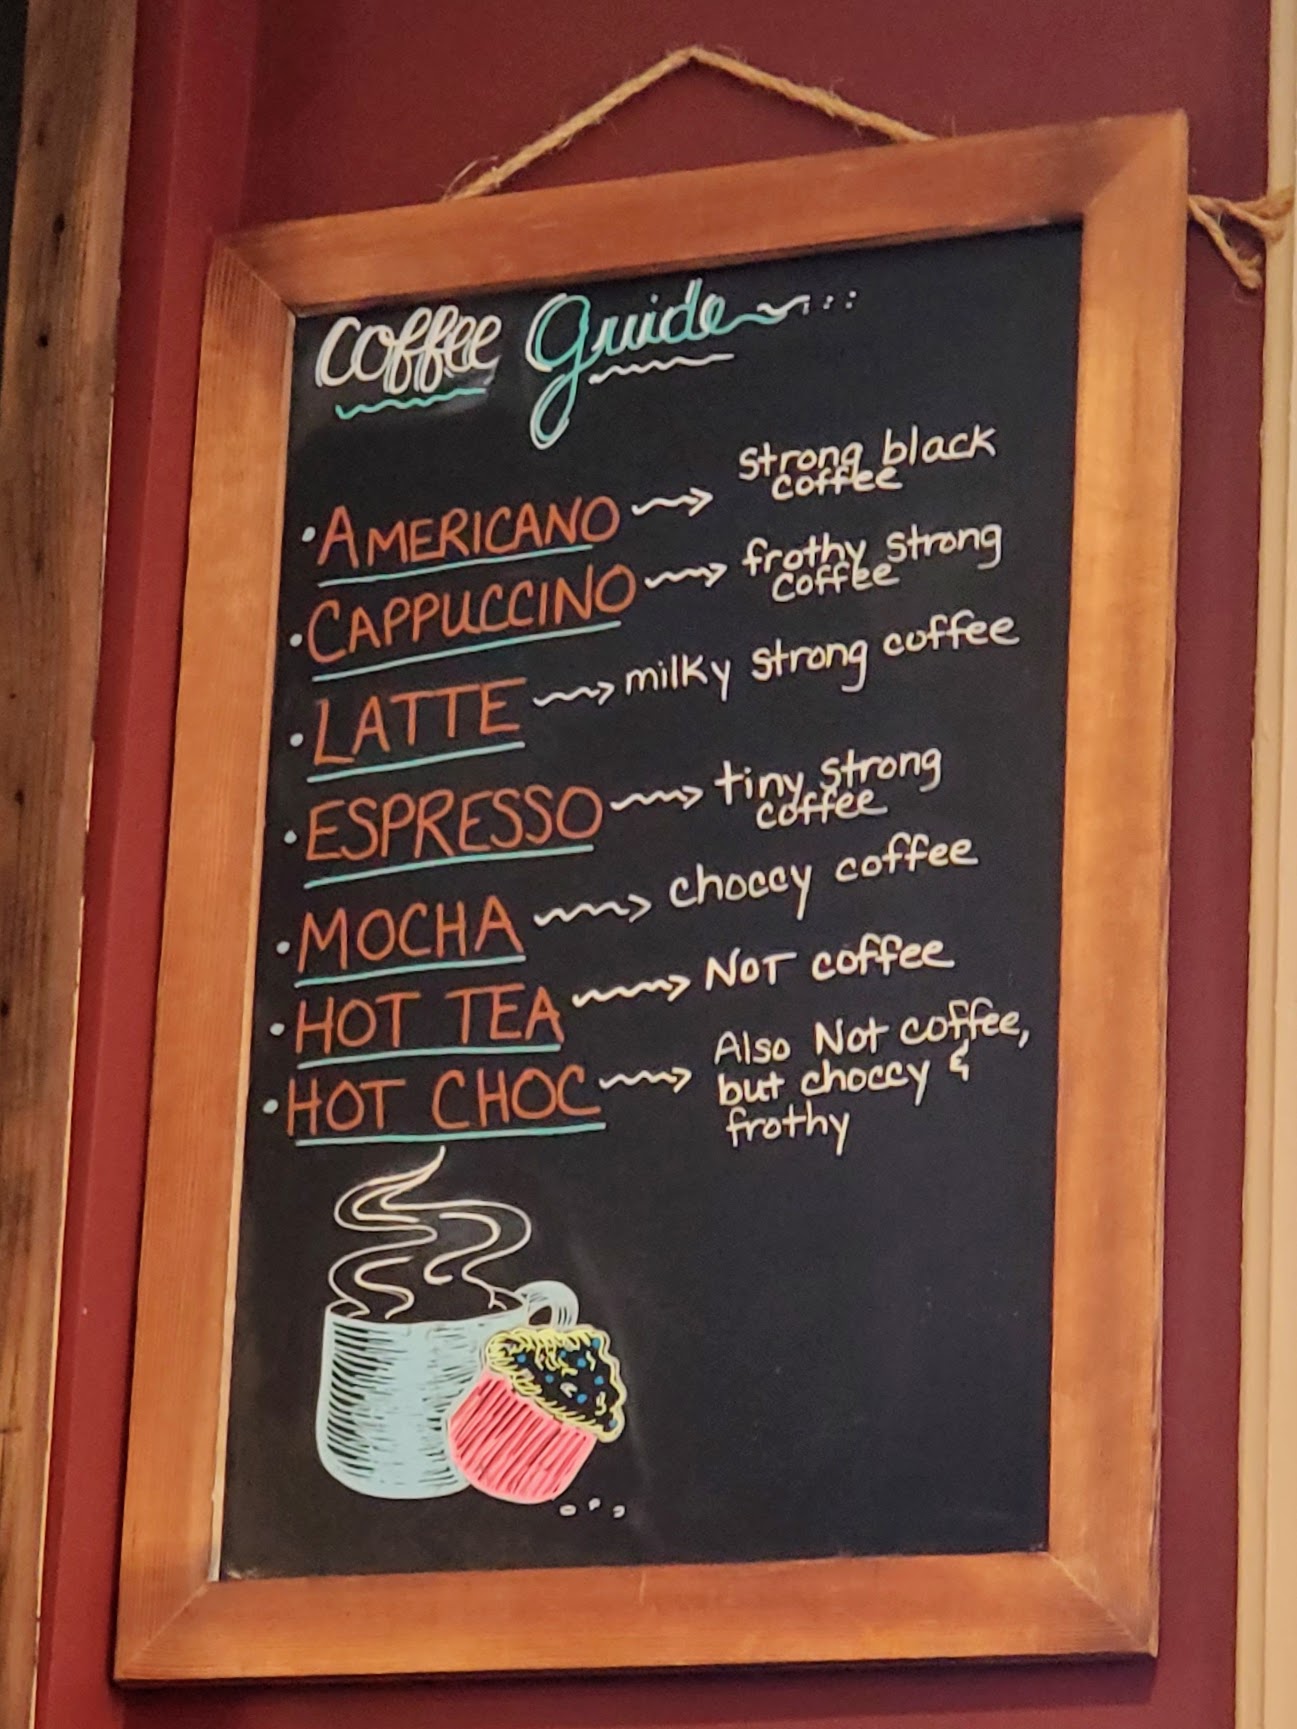 Coffee Guide
• AMERICANO → strong black
coffee
• CAPPUCCINO → frothy strong
coffee
• LATTE → milky strong coffee
• ESPRESSO → tiny strong
coffee
• MOCHA → choccy coffee
• HOT TEA → NOT coffee
• HOT CHOC → Also Not coffee,
but choccy &
frothy